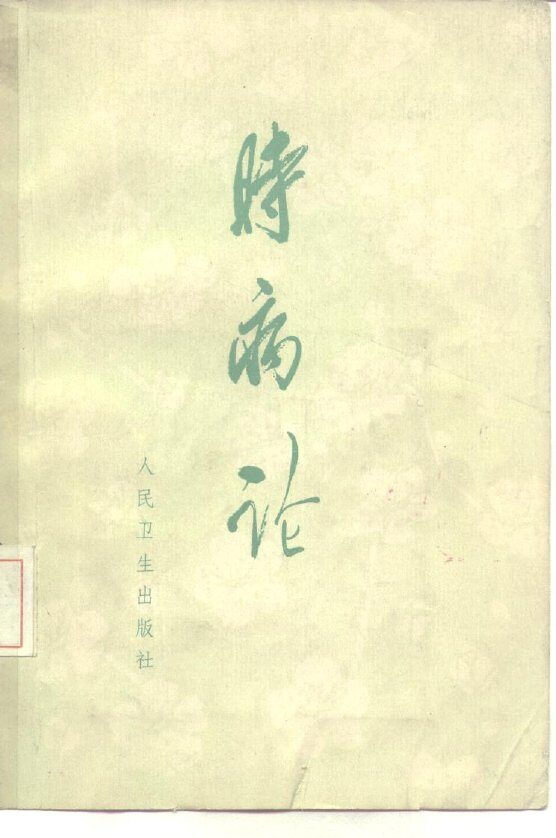 時病论
人民卫生出版社